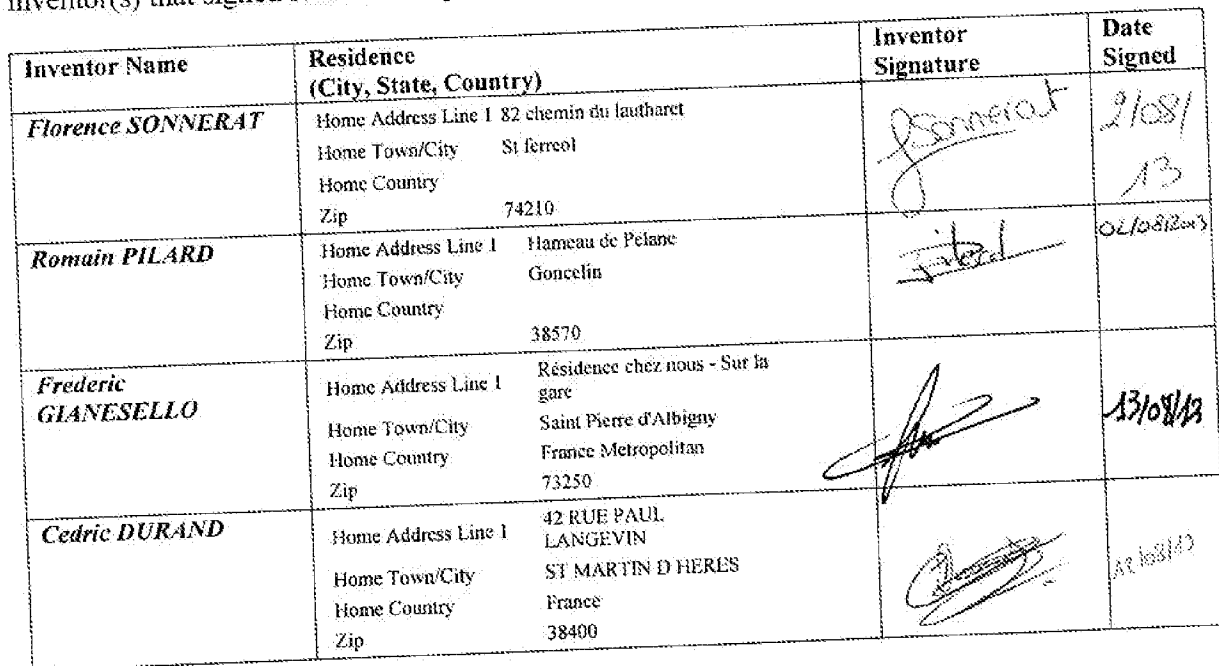 inventor(s) that signed
Inventor Name Residence (City, State, Country) Inventor Signature Date Signed
Florence SONNERAT
Home Address Line 1 82 chemin du lautharet
Home Town/City St ferreol
Home Country
Zip 74210
Sonnerat
2/08/
13
Romain PILARD
Home Address Line 1 Hameau de Pelane
Home Town/City Goncelin
Home Country
Zip 38570
02/08/2013
Frederic
GIANESELLO
Home Address Line 1 Résidence chez nous - Sur la
gare
Home Town/City Saint Pierre d'Albigny
Home Country France Metropolitan
Zip 73250
13/08/13
Cedric DURAND
Home Address Line 1 42 RUE PAUL
LANGEVIN
Home Town/City ST MARTIN D HERES
Home Country France
Zip 38400